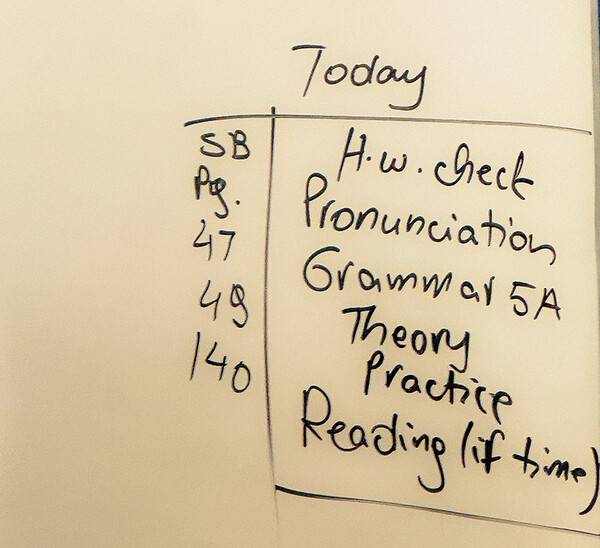 Today
SB
Pg.
47
49
140
H.w. check
Pronunciation
Grammar 5A
Theory
Practice
Reading (if time)